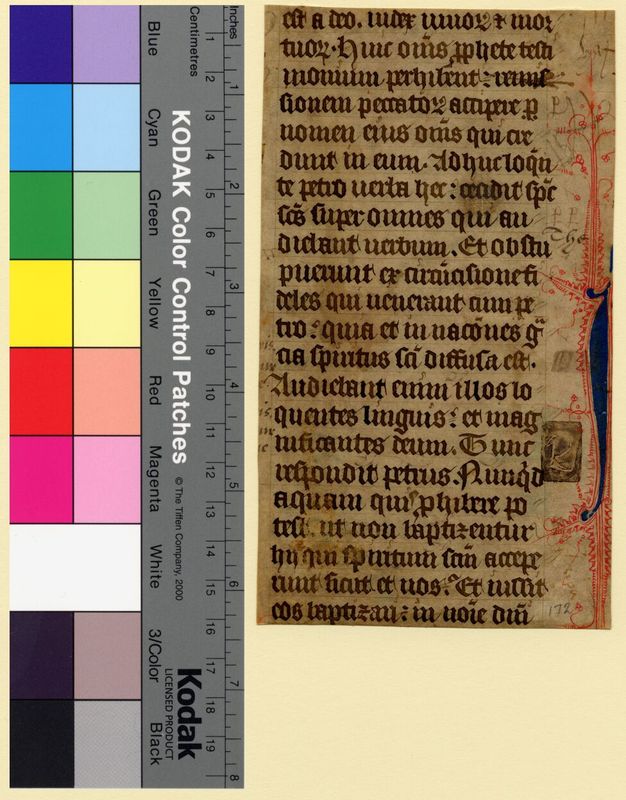 Inches
Centimetres
1 2 3 4 5 6 7 8
1 2 3 4 5 6 7 8 9 10 11 12 13 14 15 16 17 18 19
Blue
Cyan
Green
Yellow
Red
Magenta
White
3/Color
Black
KODAK Color Control Patches
© The Tiffen Company, 2000
Kodak
LICENSED PRODUCT
est a deo. iudex uiuoꝝ ⁊ mor
tuoꝝ. Huic om̄s ꝓphete testi
monium perhibent: remis
sionem peccatoꝝ accipere ꝑ
nomen eius om̄s qui cre
dunt in eum. Adhuc loq̄n
te petro uerba hec: cecidit sp̄c
sc̄s super omnes qui au
diebant uerbum. Et obstu
puerunt ex circūcisione fi
deles qui uenerant cum pe
tro: quia et in nacōnes gͣ
cia spiritus sc̄i diffusa est.
Audiebant enim illos lo
quentes linguis: et mag
nificantes deum. Tunc
respondit petrus. Nunq̇d
aquam quis ꝓhibere po
test. ut non baptizentur
hij qui spiritum sc̄m accepe
runt sicut et nos. Et iussit
eos baptizari: in noīe dn̄i
The
172